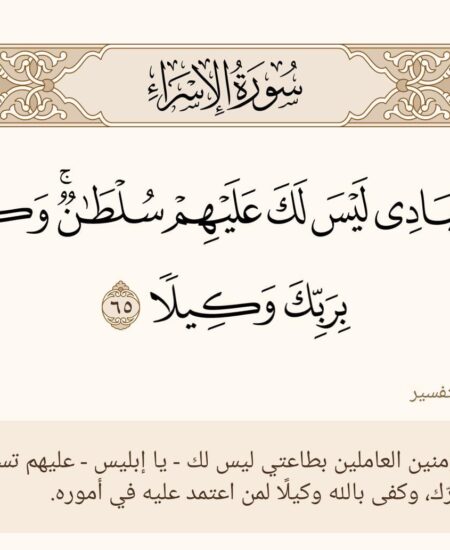 سُورَةُ الإِسْرَاءِ
لَيْسَ لَكَ عَلَيْهِمْ سُلْطَٰنٌۭ ۚ
بِرَبِّكَ وَكِيلًۭا ٦٥
العاملين بطاعتي ليس لك - يا إبليس - عليهم
وكفى بالله وكيلًا لمن اعتمد عليه في أموره.